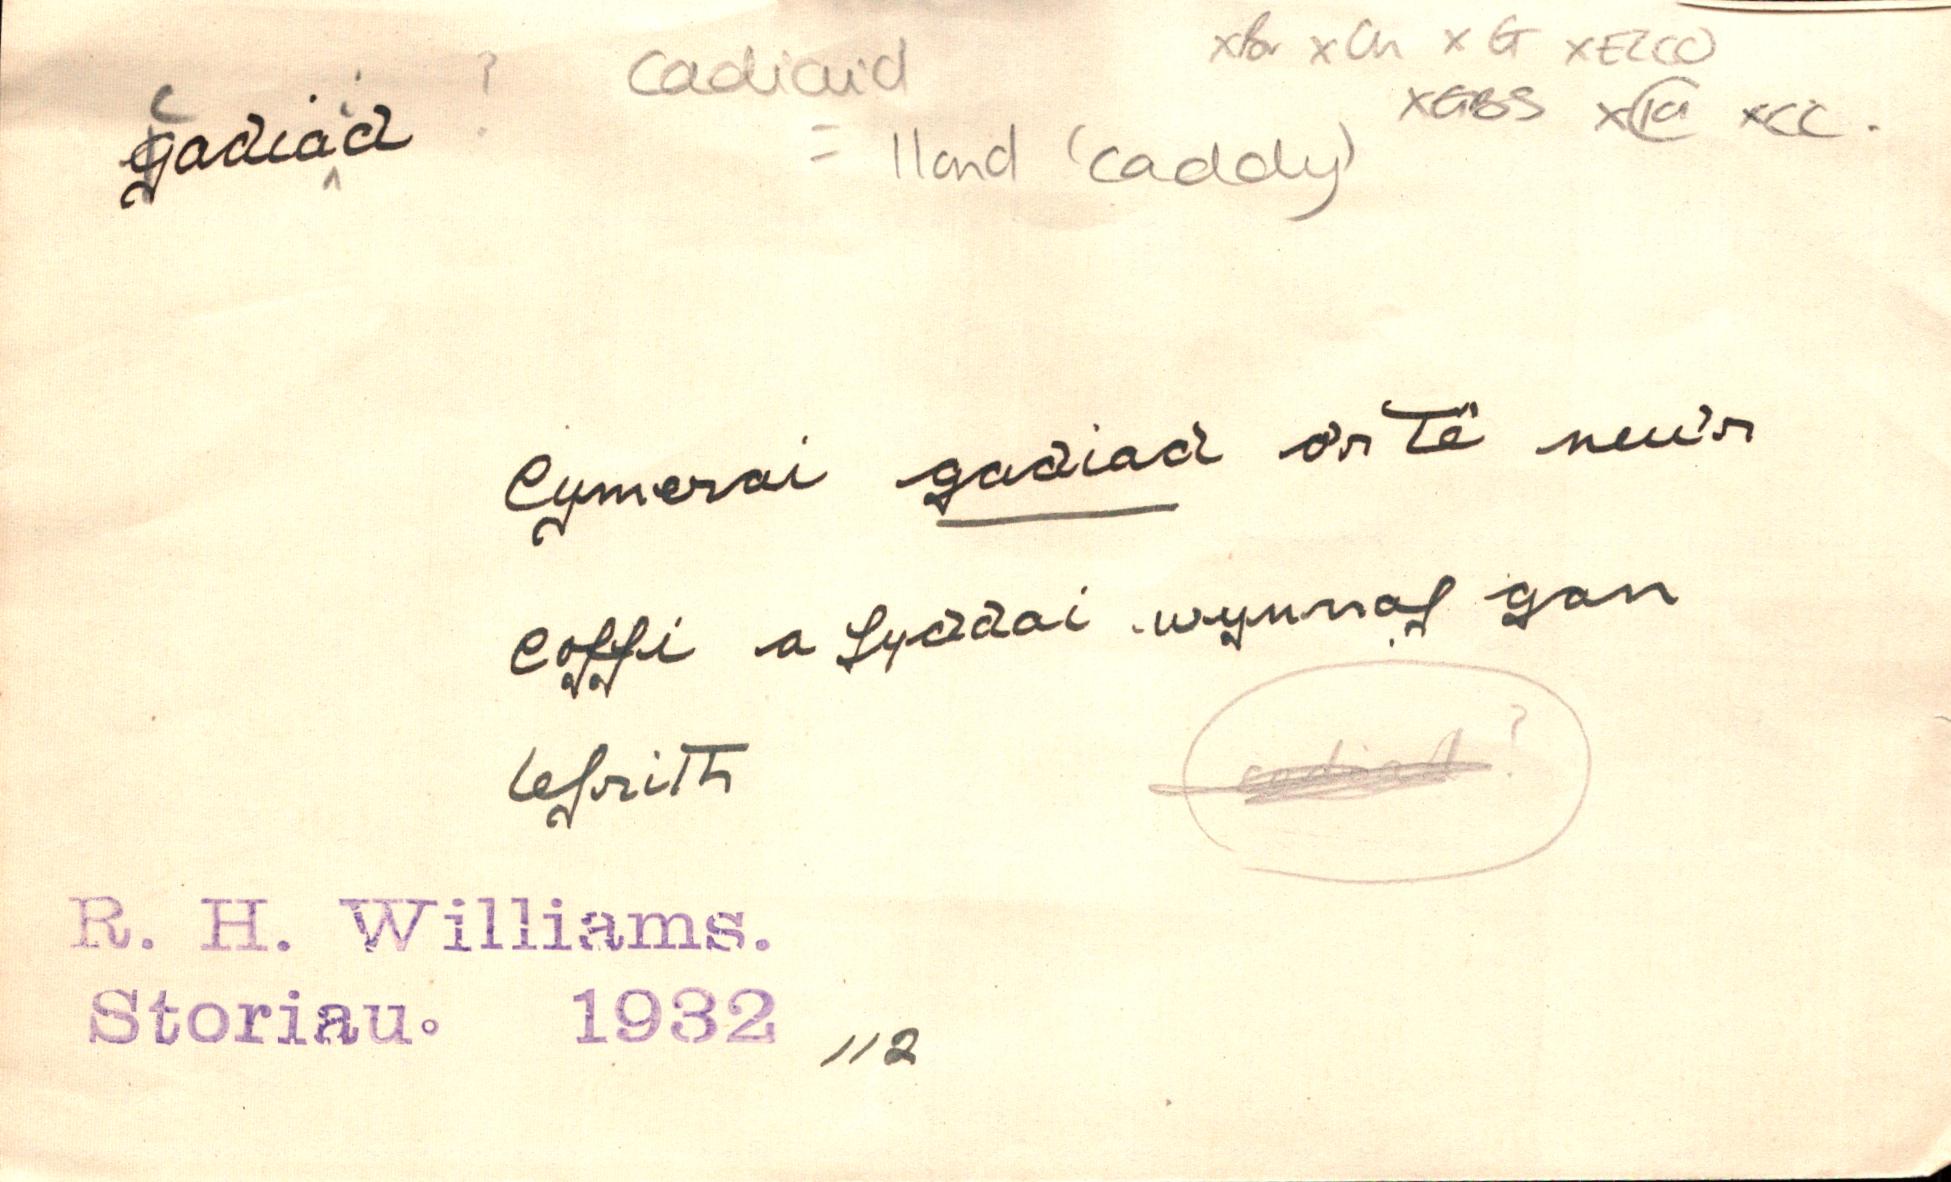 gadiad ? cadiaid xBr xCh x G xEZCO
= llond 'caddy' xGBS x xCC.
Cymerai gadiad o'r Tê neu'r
coffi a fyddai wynnaf gan
lefrith
cadiad?
R. H. Williams.
Storiau. 1932 112